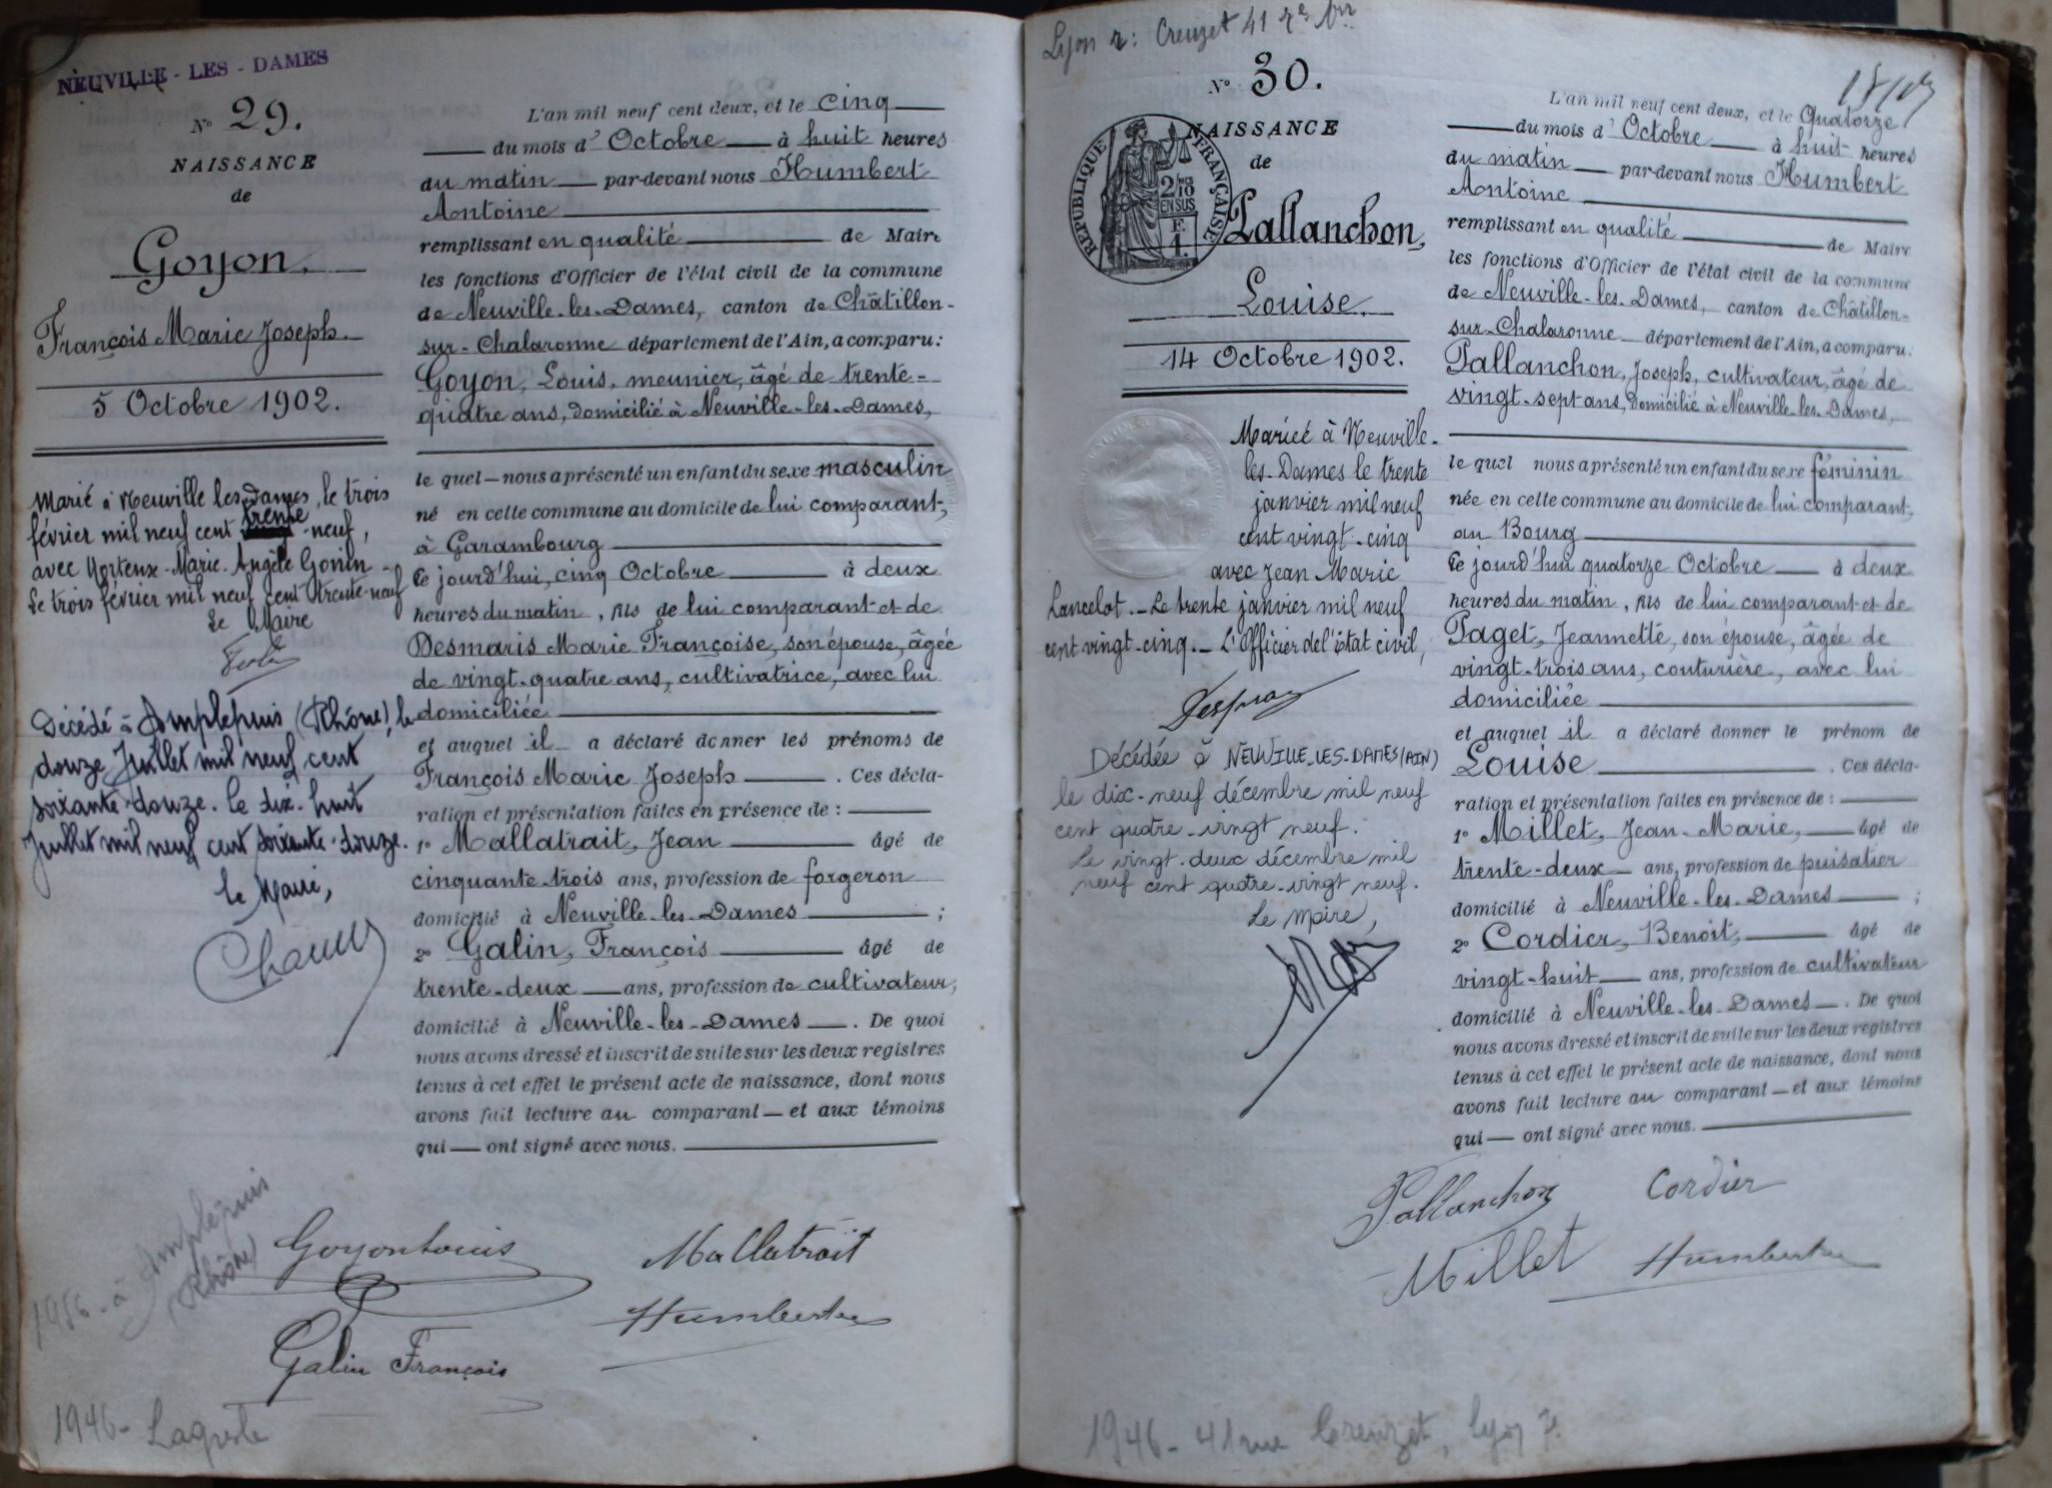 NEUVILLE - LES - DAMES
N° 29.
NAISSANCE
de
Goyon.
François Marie Joseph.
5 Octobre 1902.
Marié à Neuville les Dames, le trois
février mil neuf cent trente -neuf,
avec Hortense-Marie-Angèle Gonin -
Le trois février mil neuf cent trente-neuf
Le Maire
Décédé à Amplepuis (Rhône), le
douze Juillet mil neuf cent
soixante-douze. Le dix-huit
Juillet mil neuf cent soixante-douze.
Le Maire,
L'an mil neuf cent deux, et le Cinq
du mois d'Octobre à huit heures
du matin par-devant nous Humbert
Antoine
remplissant en qualité de Maire
les fonctions d'Officier de l'état civil de la commune
de Neuville-les-Dames, canton de Châtillon-
sur-Chalaronne département de l'Ain, a comparu:
Goyon, Louis, meunier, âgé de trente-
quatre ans, domicilié à Neuville-les-Dames,
le quel nous a présenté un enfant du sexe masculin
né en cette commune au domicile de lui comparant,
à Garambourg
Ce jourd'hui, cinq Octobre à deux
heures du matin, fils de lui comparant et de
Desmaris Marie Françoise, son épouse, âgée
de vingt-quatre ans, cultivatrice, avec lui
domiciliée
et auquel il a déclaré donner les prénoms de
François Marie Joseph . Ces décla-
ration et présentation faites en présence de :
1° Mallatrait, Jean âgé de
cinquante-trois ans, profession de forgeron
domicilié à Neuville-les-Dames ;
2° Galin, François âgé de
trente-deux ans, profession de cultivateur,
domicilié à Neuville-les-Dames . De quoi
nous avons dressé et inscrit de suite sur les deux registres
tenus à cet effet le présent acte de naissance, dont nous
avons fait lecture au comparant et aux témoins
qui ont signé avec nous.
Goyon Louis
Mallatrait
Humbert
Galin François
1956 - à Amplepuis
(Rhône)
1946 -
Lyon r: Creuzet 41 
N° 30.
NAISSANCE
de
RÉPUBLIQUE FRANÇAISE
2/10
EN SUS
F.
1.
Pallanchon,
Louise.
14 Octobre 1902.
Mariée à Neuville-
les-Dames le trente
janvier mil neuf
cent vingt-cinq
avec Jean Marie
Lancelot. - Le trente janvier mil neuf
cent vingt-cinq. - L'Officier de l'état civil,
Décédée à NEUVILLE-LES-DAMES (AIN)
le dix-neuf décembre mil neuf
cent quatre-vingt neuf.
Le vingt-deux décembre mil
neuf cent quatre-vingt neuf.
Le maire,
L'an mil neuf cent deux, et le Quatorze
du mois d'Octobre à huit heures
du matin par-devant nous Humbert
Antoine
remplissant en qualité de Maire
les fonctions d'Officier de l'état civil de la commune
de Neuville-les-Dames, canton de Châtillon-
sur-Chalaronne département de l'Ain, a comparu:
Pallanchon, Joseph, cultivateur, âgé de
vingt-sept ans, domicilié à Neuville-les-Dames,
le quel nous a présenté un enfant du sexe féminin
née en cette commune au domicile de lui comparant,
au Bourg
Ce jourd'hui quatorze Octobre à deux
heures du matin, fils de lui comparant et de
Paget, Jeannette, son épouse, âgée de
vingt-trois ans, couturière, avec lui
domiciliée
et auquel il a déclaré donner le prénom de
Louise . Ces décla-
ration et présentation faites en présence de :
1° Millet, Jean-Marie, âgé de
trente-deux ans, profession de puisatier
domicilié à Neuville-les-Dames ;
2° Cordier, Benoit, âgé de
vingt-huit ans, profession de cultivateur
domicilié à Neuville-les-Dames . De quoi
nous avons dressé et inscrit de suite sur les deux registres
tenus à cet effet le présent acte de naissance, dont nous
avons fait lecture au comparant et aux témoins
qui ont signé avec nous.
Pallanchon
Cordier
Millet
Humbert
1946 - 41 rue Creuzet, Lyon 7e